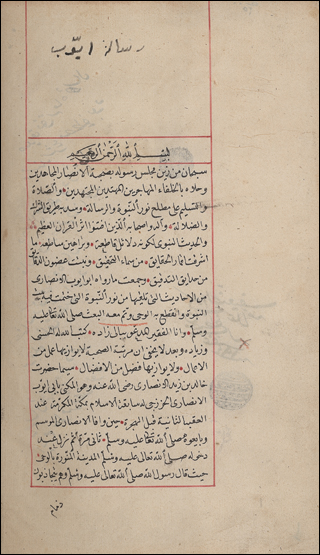 رسالة ايوب
بسم الله الرحمن الرحيم
سبحان من زين مجلس رسوله بصحبة الانصار المجاهدين
وحلاه بالخلفاء المهاجرين المهتدين المجتهدين والصلاة
والتسليم على مطلع نور النبوة والرسالة وسد طريق
والضلالة وآله واصحابه الذين اقتفوا اثر القران العظيم
والحديث النبوى لكونه دلائل قاطعة وبراهين ساطعة ما
اشرقت الحقايق من سماء التحقيق ونبتت غصون الدقائق
من حدايق التدقيق وجمعت ما رواه ابو ايوب الانصارى
من الاحاديث التى تلقيها من نور النبوة التى ختمت
النبوة وانقطع به الوحى وتم معه البعث صلى الله تعالى عليه
وسلم وانا الفقير زاده كتب الله له الحسنى
وزياده وبعد لا يخفى ان مرتبة الصحبة لا يوازيها عمل من
الاعمال ولا يوازنها فضل من الافضال سيما لحضرت
خالد بن زيد الانصارى رضى الله عنه وهو المكنى بابى ايوب
الانصارى الخزرجى له سابقة الاسلام بمكة المكرمة عند
العقبة الثانية قبل الهجرة حين وافا الانصارى الموسم
وبايعوه صلى الله تعالى عليه وسلم ثانى مرة ثم نزل عنده
دخوله صلى الله تعالى عليه وسلم المدينة المنورة بالوحى
حيث قال رسول الله صلى الله تعالى عليه وسلم وهو